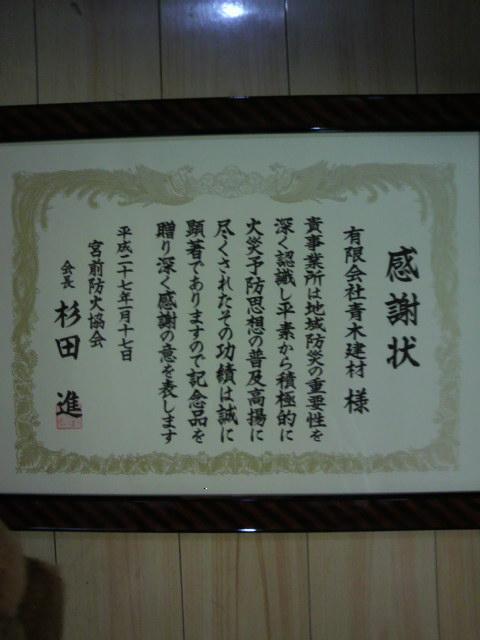 感謝状
有限会社青木建材 様
貴事業所は地域防災の重要性を
深く認識し平素から積極的に
火災予防思想の普及高揚に
尽くされたその功績は誠に
顕著でありますので記念品を
贈り深く感謝の意を表します
平成二十七年一月十七日
宮前防火協会
会長 杉田 進